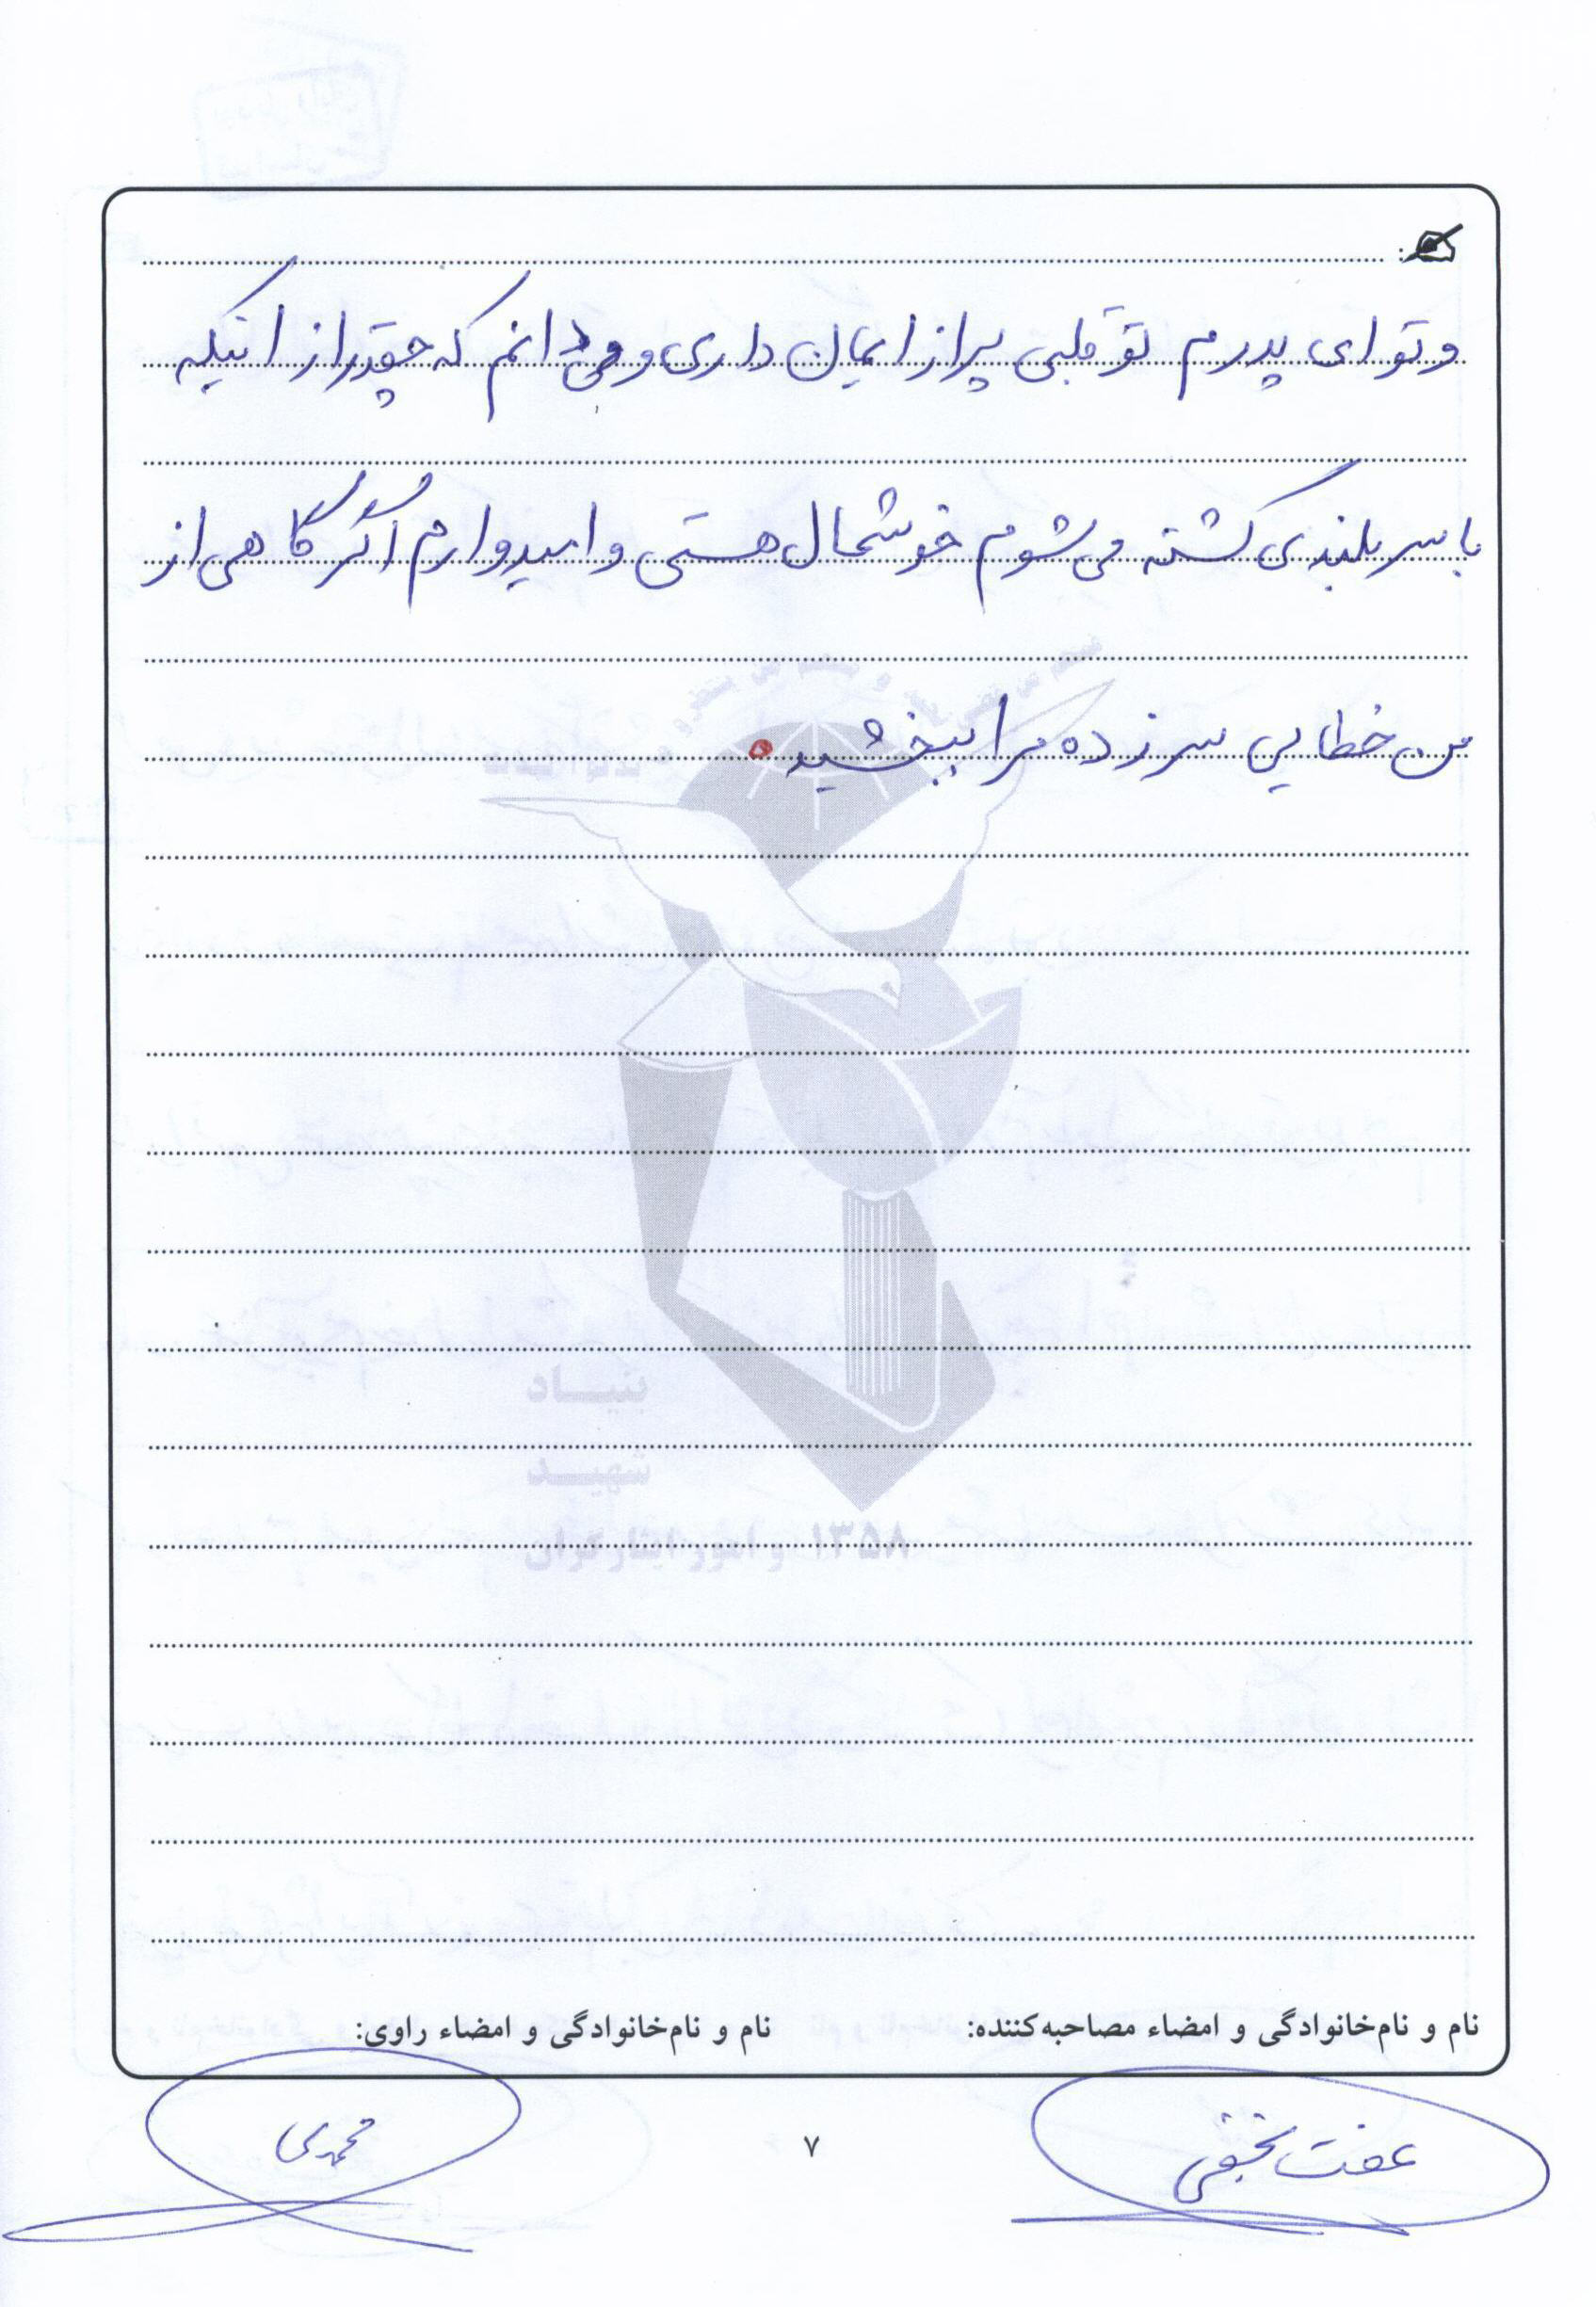 و تو ای پدرم تو قلبی پر از ایمان داری و می دانم که چقدر از اینکه
با سربلندی کشته می شوم خوشحال هستی و امیدوارم اگر گاهی از
من خطایی سر زده مرا ببخشید
بنیاد
شهید
و امور ایثارگران ۱۳۵۸
نام و نام‌خانوادگی و امضاء مصاحبه‌کننده: نام و نام‌خانوادگی و امضاء راوی:
عفت نجفی ۷ محمدی